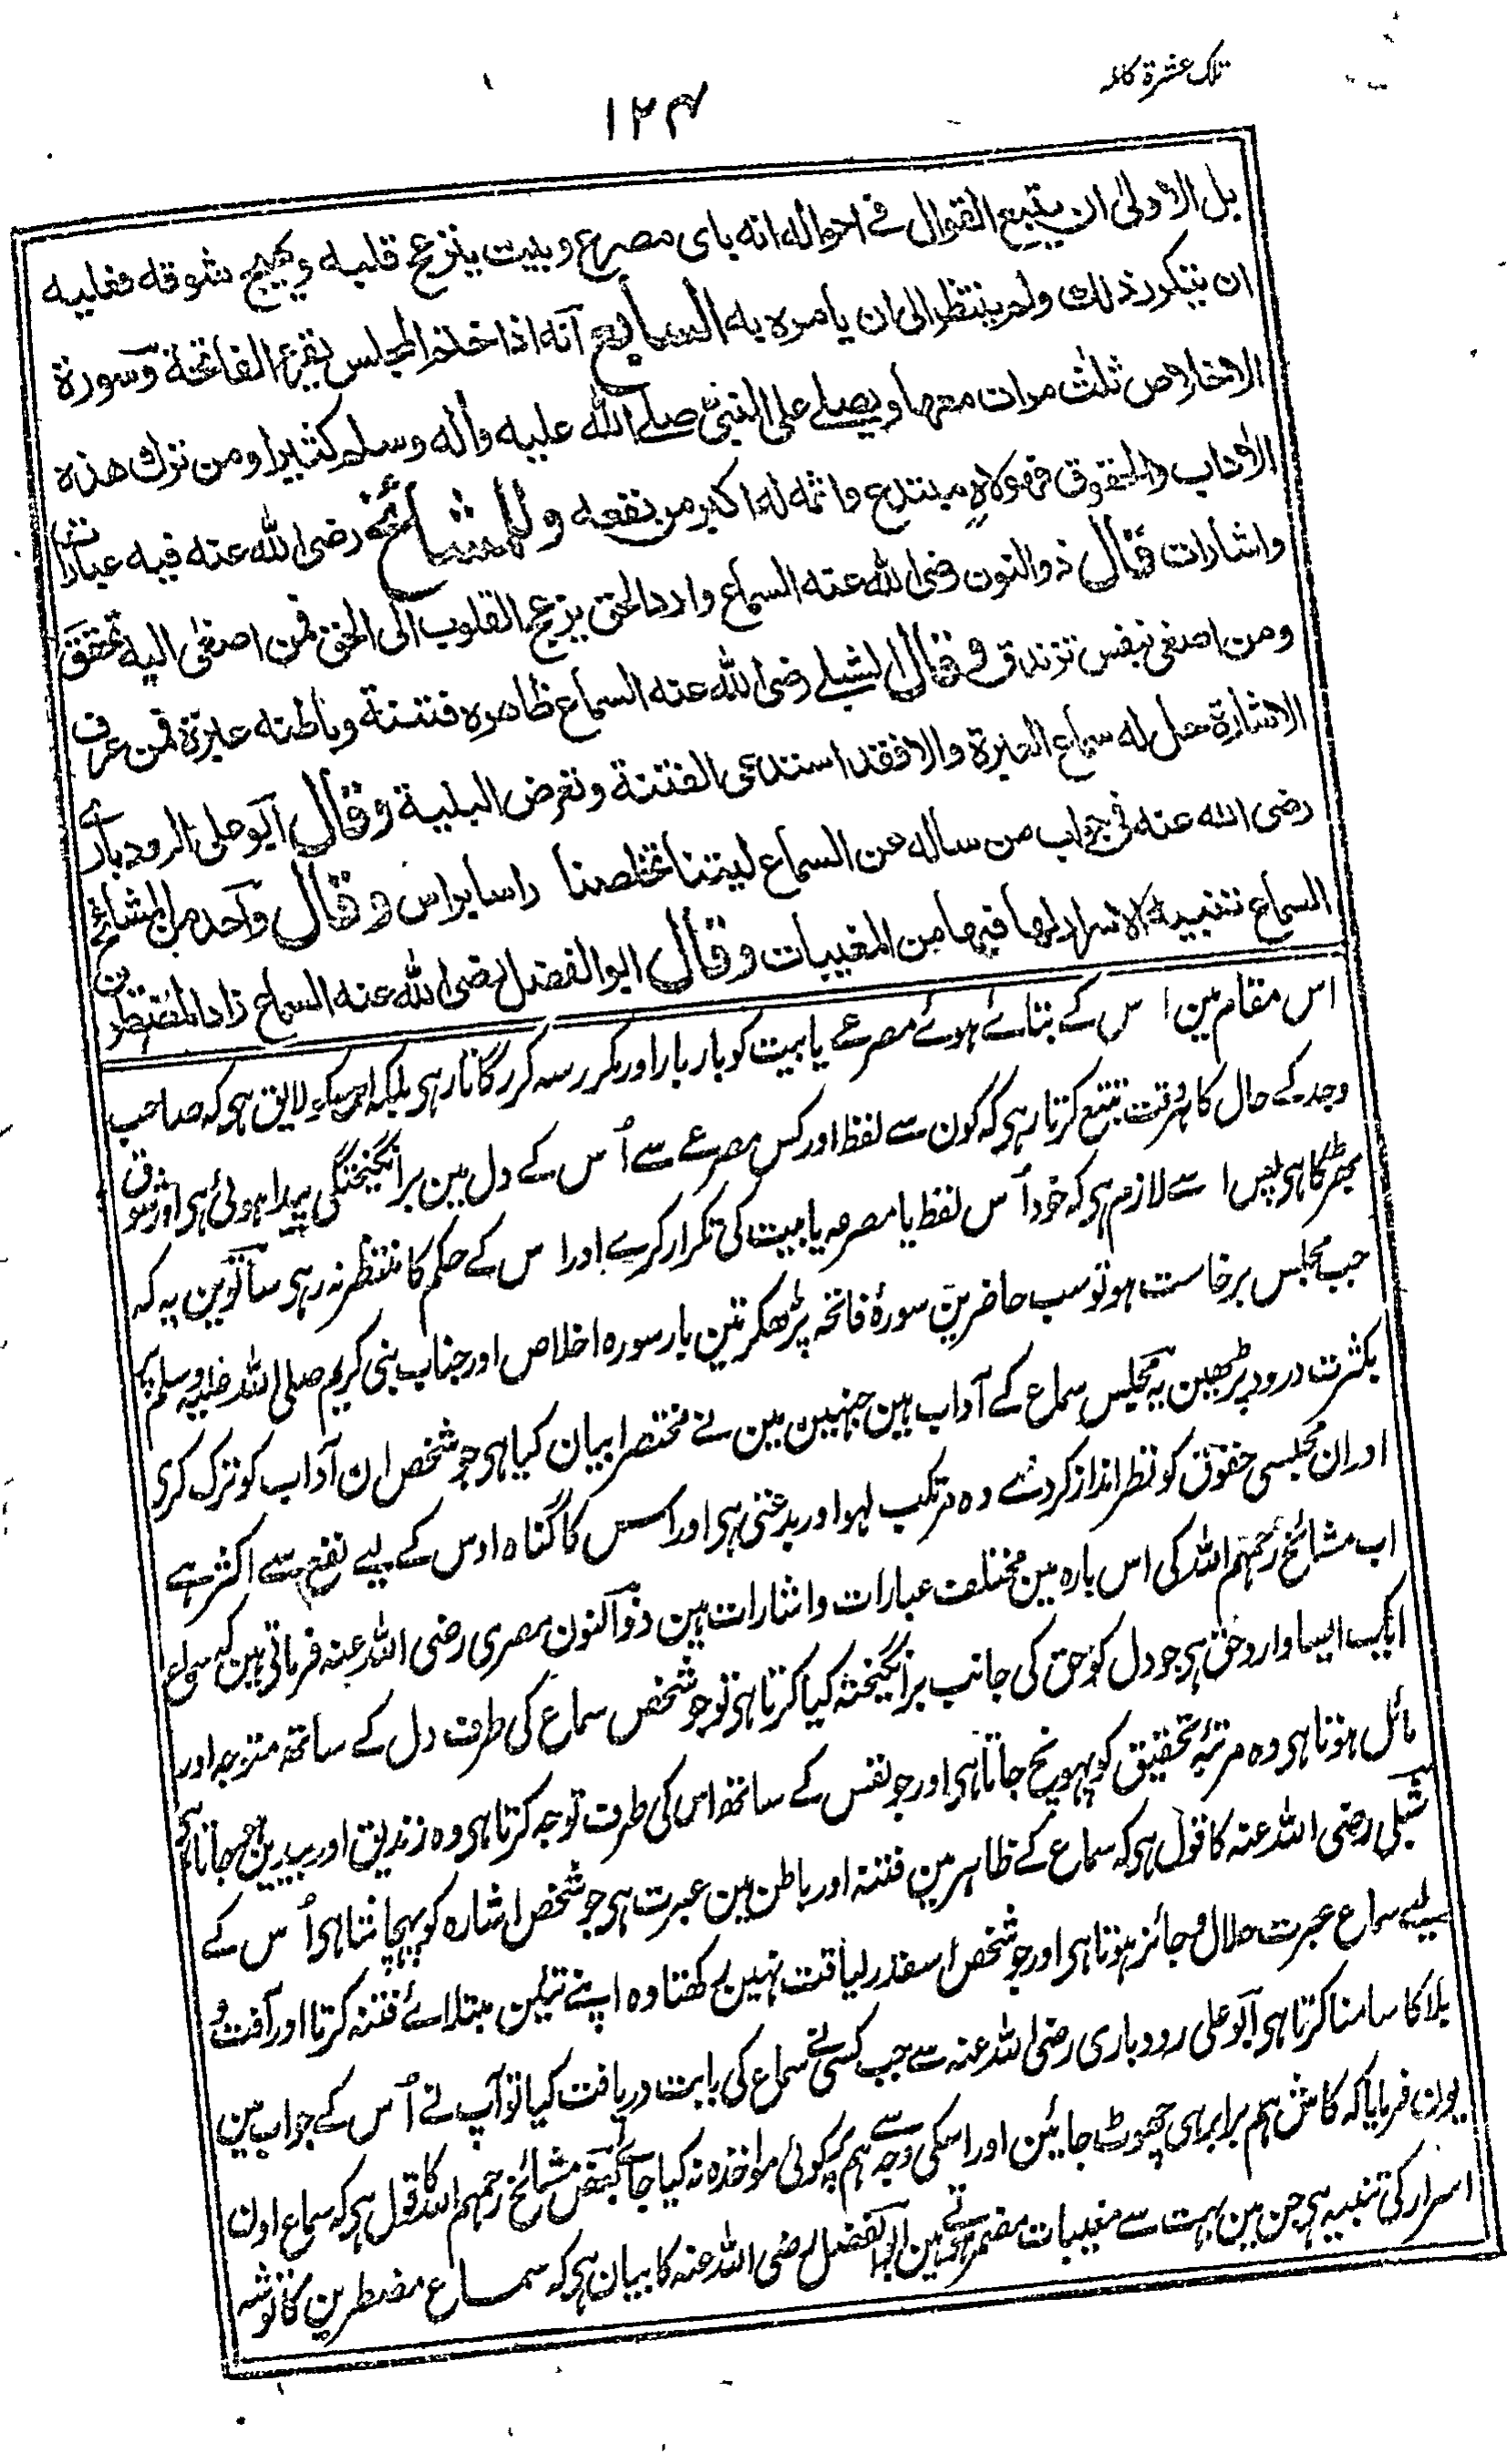 تلک عشرة کاملہ
۱۲۴
بل الاولی ان یتتبع القوال فے احوالہ انہ بای مصرع وبیت ینزعج قلبہ ویہیج شوقہ فعلیہ
ان یتکرر ذلک ولم ینتظر الی ان یامرہ بہ السابع آنہ اذا ختم المجلس یقرء الفاتحة وسورة
الاخلاص ثلث مرات معہا ویصلے علی النبیّ صلے اللہ علیہ وآلہ وسلم کثیرا ومن ترک ھذہ
الآداب والحقوق فھو لاہٍ مبتدع واثمہ لہ اکبر من نفعہ وللمشائخ رضی اللہ عنہ فیہ عبارات
واشارات قال ذوالنون رضی اللہ عنہ السماع وارد الحق یزعج القلوب الی الحق فمن اصغی الیہ تحقق
ومن اصغی بنفس تزندق وقال الشبلے رضی اللہ عنہ السماع ظاھرہ فتنة وباطنہ عبرة فمن عرف
الاشارة حل لہ سماع العبرة والا فقد استدعی الفتنة وتعرض البلیة وقال آبو علی الرودباری
رضی اللہ عنہ فی جواب من سالہ عن السماع لیتنا تخلصنا راسا براس وقال وآحد من المشائخ
السماع تنبیہ الاسرار لما فیہا من المغیبات وقال ابو الفضل رضی اللہ عنہ السماع زاد المضطرین
اس مقام مین اس کے بتائے ہوئے مصرعے یا بیت کو بار بار اور مکرر سہ کرر گاتا رہی بلکہ اسکو لایق ہی کہ صاحب
وجد کے حال کا ہر وقت تتبع کرتا رہی کہ کون سے لفظ اور کس مصرعے سے اُس کے دل مین برانگیختگی پیدا ہوئی ہی اور شوق
بھڑکا ہی پس اسے لازم ہی کہ خود اُس لفظ یا مصرعہ یا بیت کی تکرار کرے اور اس کے حکم کا منتظر نہ رہی ساتوین یہ کہ
جب مجلس برخاست ہو تو سب حاضرین سورۂ فاتحہ پڑھکر تین بار سورہ اخلاص اور جناب نبی کریم صلی اللہ علیہ وسلم پر
بکثرت درود پڑھین یہ مجلس سماع کے آداب ہین جنہین مین نے مختصرا بیان کیا ہی جو شخص ان آداب کو ترک کری
اور ان مجلسی حقوق کو نظر انداز کردے وہ مرتکب لہو اور بدعتی ہی اور اسس کا گناہ اوس کے لیے نفع سے اکثر ہے
اب مشائخ رحمہم اللہ کی اس بارہ مین مختلف عبارات واشارات ہین ذوالنون مصری رضی اللہ عنہ فرماتی ہین کہ سماع
ایک ایسا وارد حق ہی جو دل کو حق کی جانب برانگیختہ کیا کرتا ہی تو جو شخص سماع کی طرف دل کے ساتھ متوجہ اور
مائل ہوتا ہی وہ مرتبۂ تحقیق کو پہونچ جاتا ہی اور جو نفس کے ساتھ اس کی طرف توجہ کرتا ہی وہ زندیق اور بیدین ہو جاتا ہی
شبلی رضی اللہ عنہ کا قول ہی کہ سماع کے ظاہر مین فتنہ اور باطن مین عبرت ہی جو شخص اشارہ کو پہچانتا ہی اُس کے
لیے سماع عبرت حلال و جائز ہوتا ہی اور جو شخص اسقدر لیاقت نہین رکھتا وہ اپنے تئین مبتلائے فتنہ کرتا اور آفت و
بلا کا سامنا کرتا ہی آبو علی رودباری رضی اللہ عنہ سے جب کسی نے سماع کی بابت دریافت کیا تو آپ نے اُس کے جواب مین
یون فرمایا کہ کاش ہم برابر ہی چھوٹ جائین اور اسکی وجہ سے ہم پر کوئی مواخذہ نہ کیا جائے بعض مشائخ رحمہم اللہ کا قول ہی کہ سماع اون
اسرار کی تنبیہ ہی جن مین بہت سے مغیبات مضمر ہوتے ہین ابو الفضل رضی اللہ عنہ کا بیان ہی کہ سماع مضطرین کا توشہ